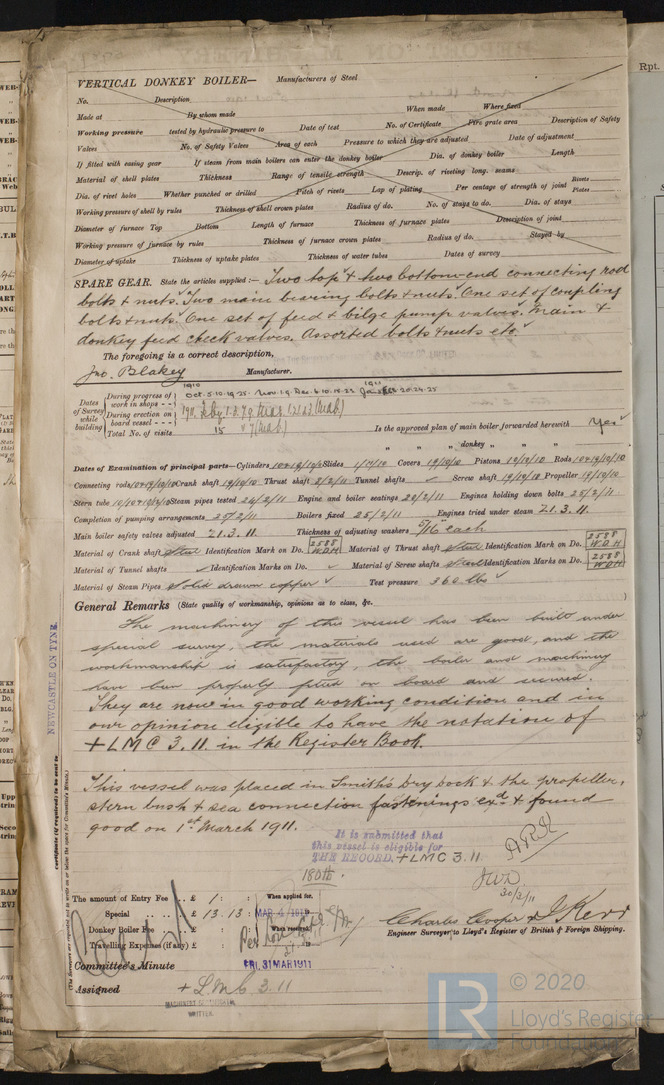 VERTICAL DONKEY BOILER— Manufacturers of Steel
No. Description
Made at By whom made When made Where fixed
Working pressure tested by hydraulic pressure to Date of test No. of Certificate Fire grate area Description of Safety
Valves No. of Safety Valves Area of each Pressure to which they are adjusted Date of adjustment
If fitted with easing gear If steam from main boilers can enter the donkey boiler Dia. of donkey boiler Length
Material of shell plates Thickness Range of tensile strength Descrip. of riveting long. seams
Dia. of rivet holes Whether punched or drilled Pitch of rivets Lap of plating Per centage of strength of joint Rivets Plates
Working pressure of shell by rules Thickness of shell crown plates Radius of do. No. of stays to do. Dia. of stays
Diameter of furnace Top Bottom Length of furnace Thickness of furnace plates Description of joint
Working pressure of furnace by rules Thickness of furnace crown plates Radius of do. Stayed by
Diameter of uptake Thickness of uptake plates Thickness of water tubes Dates of survey
SPARE GEAR. State the articles supplied:— Two top & two bottom-end connecting rod
bolts & nuts. Two main bearing bolts & nuts. One set of coupling
bolts & nuts. One set of feed & bilge pump valves. Main &
donkey feed check valves. Assorted bolts & nuts etc.
The foregoing is a correct description,
Jno. Blakey Manufacturer.
Dates of Survey while building
During progress of work in shops - - 1910 Oct. 5.10.19.25. Nov. 1.9. Dec. 6.10.15.23 1911 20.24.25
During erection on board vessel - - - 1911
Total No. of visits 15 Is the approved plan of main boiler forwarded herewith Yes
" " " donkey " " "
Dates of Examination of principal parts—Cylinders Slides Covers 19/10/10 Pistons 19/10/10 Rods
Connecting rods Crank shaft 19/10/10 Thrust shaft Tunnel shafts Screw shaft 19/10/10 Propeller 19/10/10
Stern tube Steam pipes tested 24/2/11 Engine and boiler seatings 20/2/11 Engines holding down bolts 25/2/11
Completion of pumping arrangements 25/2/11 Boilers fixed 25/2/11 Engines tried under steam 21.3.11.
Main boiler safety valves adjusted 21.3.11. Thickness of adjusting washers 5/16" each
Material of Crank shaft Steel Identification Mark on Do. 2588 W.D.H Material of Thrust shaft Steel Identification Mark on Do. 2588 W.D.H
Material of Tunnel shafts Identification Marks on Do. Material of Screw shafts Steel Identification Marks on Do. 2588 W.D.H
Material of Steam Pipes Solid drawn copper Test pressure 360 lbs
General Remarks (State quality of workmanship, opinions as to class, &c.
The machinery of this vessel has been built under
special survey, the materials used are good, and the
workmanship is satisfactory, the boiler and machinery
have been properly fitted on board and secured.
They are now in good working condition and in
our opinion eligible to have the notation of
+ LMC 3.11. in the Register Book.
This vessel was placed in Smith's Dry Dock & the propeller,
stern bush & sea connection fastenings exd & found
good on 1st March 1911.
It is submitted that
this vessel is eligible for
THE RECORD. + LMC 3.11.
JWD
30/3/11
The amount of Entry Fee .. £ 1 : : When applied for.
Special .. .. £ 13 : 13 :
Donkey Boiler Fee .. .. £ : : When received.
Travelling Expenses (if any) £ : :
Charles Cooper & J Kerr
Engineer Surveyor to Lloyd's Register of British & Foreign Shipping.
Committee's Minute FRI. 31 MAR 1911
Assigned + L.M.C. 3.11
MACHINERY CERTIFICATE
WRITTEN
NEWCASTLE ON TYNE.
Certificate (if required) to be sent to
(The Surveyors are requested not to write on or below the space for Committee's Minute.)
Rpt.
LR
© 2020
Lloyd's Register
Foundation